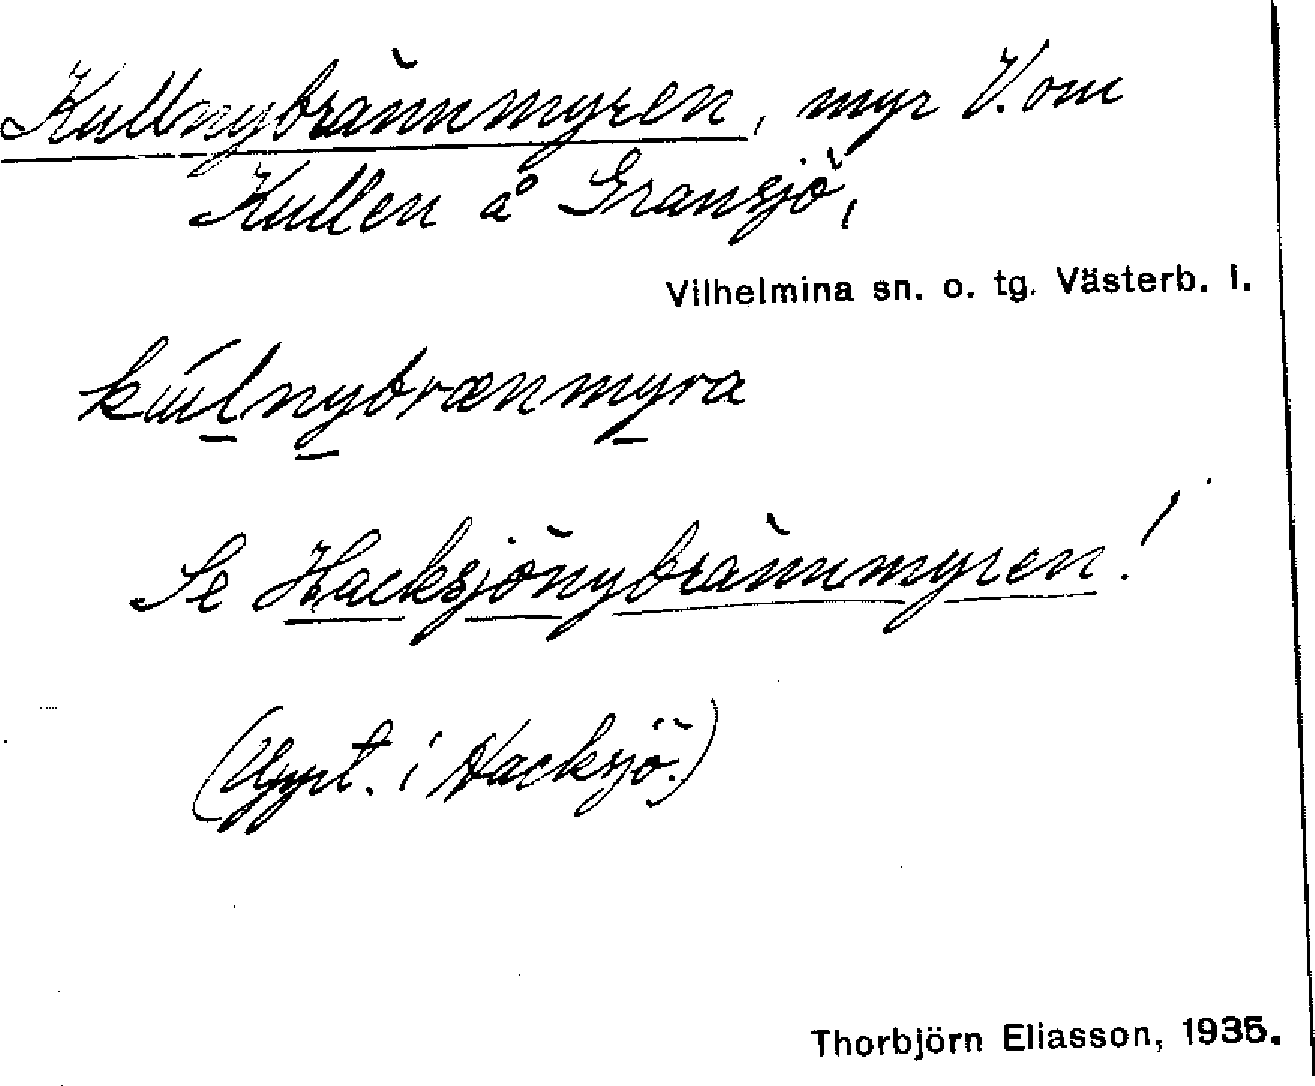 Kullnybrännmyren, myr V. om
Kullen å Gransjö,
Vilhelmina sn. o. tg. Västerb. l.
kúlnybrænmyra
Se Hacksjönybrännmyren!
(Uppt. i Hacksjö.)
Thorbjörn Eliasson, 1935.